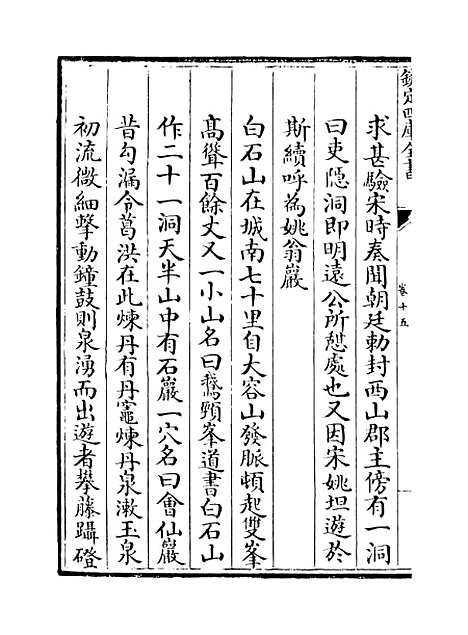 欽定四庫全書
卷十五
求甚驗宋時奏聞朝廷勅封西山郡主傍有一洞
曰吏隱洞即明遠公所憇處也又因宋姚坦遊於
斯續呼為姚翁巖
白石山在城南七十里自大容山發脈頓起雙峯
髙聳百餘丈又一小山名曰鵞頸峯道書白石山
作二十一洞天半山中有石巖一穴名曰㑹仙巖
昔勾漏令葛洪在此煉丹有丹竈煉丹泉漱玉泉
初流微細擊動鐘鼓則泉湧而出遊者攀藤躡磴